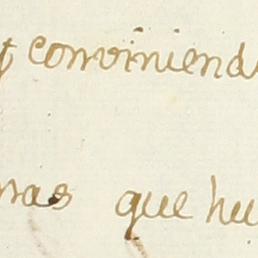 conviniend
mas que hu